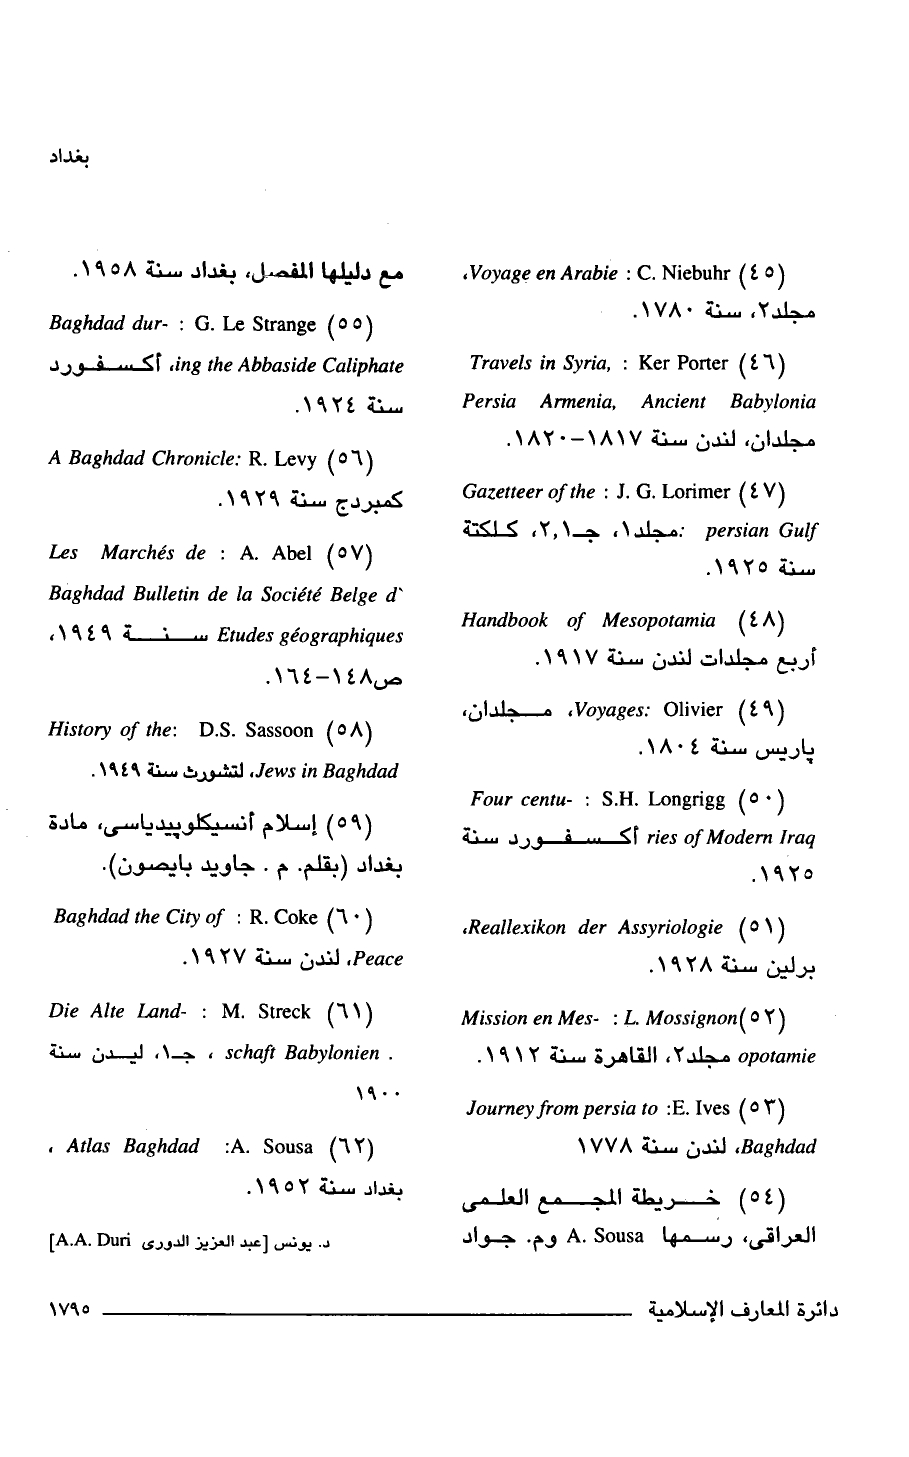 بغداد
(٤٥) C. Niebuhr : Voyage en Arabie،
مجلد٢، سنة ١٧٨٠.
(٤٦) Ker Porter : Travels in Syria,
Persia Armenia, Ancient Babylonia
مجلدان، لندن سنة ١٨١٧-١٨٢٠.
(٤٧) J. G. Lorimer : Gazetteer of the
persian Gulf :مجلد١، جـ١,٢، كلكتة
سنة ١٩٢٥.
(٤٨) Handbook of Mesopotamia
أربع مجلدات لندن سنة ١٩١٧.
(٤٩) Olivier :Voyages، مجلدان،
پاريس سنة ١٨٠٤.
(٥٠) S.H. Longrigg : Four centu-
ries of Modern Iraq أكسفورد سنة
١٩٢٥.
(٥١) Reallexikon der Assyriologie،
برلين سنة ١٩٢٨.
(٥٢)L. Mossignon : Mission en Mes-
opotamie مجلد٢، القاهرة سنة ١٩١٢.
(٥٣) E. Ives: Journey from persia to
Baghdad، لندن سنة ١٧٧٨
(٥٤) خريطة المجمع العلمى
العراقى، رسمها A. Sousa وم. جواد
مع دليلها المفصل، بغداد سنة ١٩٥٨.
(٥٥) G. Le Strange : Baghdad dur-
ing the Abbaside Caliphate، أكسفورد
سنة ١٩٢٤.
(٥٦) R. Levy :A Baghdad Chronicle
كمبردج سنة ١٩٢٩.
(٥٧) A. Abel : Les Marchés de
Baghdad Bulletin de la Société Belge d`
Etudes géographiques سنة ١٩٤٩،
ص١٤٨-١٦٤.
(٥٨) D.S. Sassoon :History of the
Jews in Baghdad، لتشورث سنة ١٩٤٩.
(٥٩) إسلام أنسيكلوپيدياسى، مادة
بغداد (بقلم. م . جاويد بايصون).
(٦٠) R. Coke : Baghdad the City of
Peace، لندن سنة ١٩٢٧.
(٦١) M. Streck : Die Alte Land-
schaft Babylonien . ، جـ١، ليدن سنة
١٩٠٠
(٦٢) A. Sousa: Atlas Baghdad ،
بغداد سنة ١٩٥٢.
د. يونس [عبد العزيز الدورى A.A. Duri]
دائرة المعارف الإسلامية ١٧٩٥